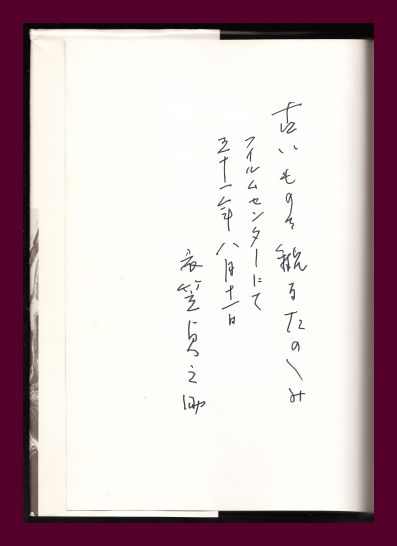 古いものを観るたのしみ
フイルムセンターにて
五十一年八月十一日
衣笠貞之助